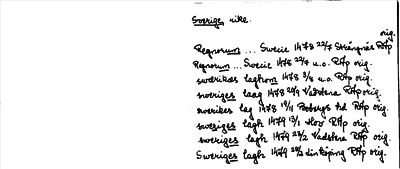 Sverige, rike.
orig.
Regnorum ... Swecie 1478 22/7 Strängnäs RAp
Regnorum ... Swecie 1478 22/7 u.o. RAp orig.
swerikes laghom 1478 3/8 u.o. RAp orig.
sweriges laag 1478 20/9 Vadstena RAp orig.
swerikes lag 1478 19/11 Bobergs hd RAp orig.
sweriges lagh 1479 13/1 Hov RAp orig.
sweriges lagh 1479 22/2 Vadstena RAp orig.
Sweriges lagh 1479 Linköping RAp orig.